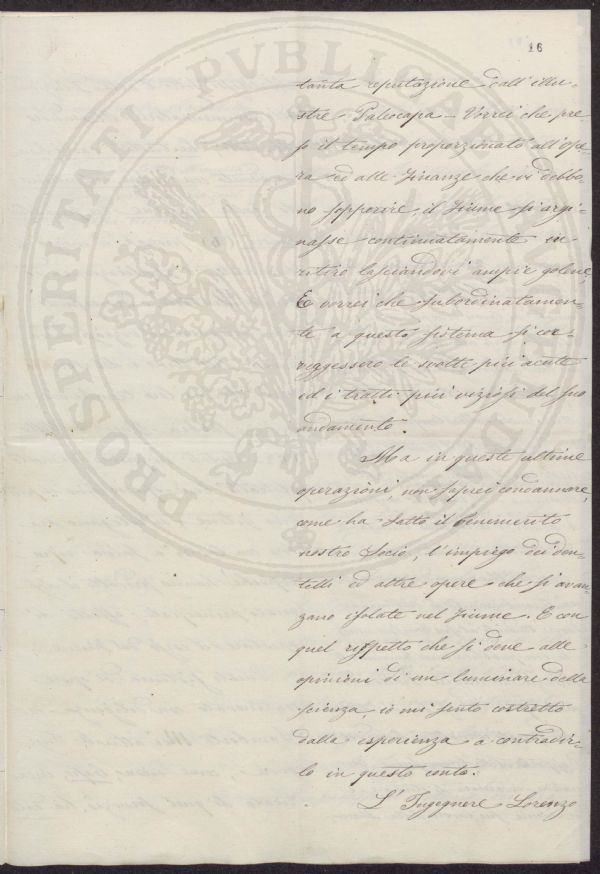 16
tanta reputazione dall'illu-
stre Paleocapa – Vorrei che pre-
so il tempo proporzionato all'ope-
ra ed alle finanze che vi debbo-
no sopperire, il fiume si argi-
nasse continuatamente in
ritiro lasciandovi ampie golene,
E vorrei che subordinatamen-
te a questo sistema si cor-
reggessero le svolte più acute
ed i tratti più viziosi del suo
andamento.
Ma in queste ultime
operazioni, non saprei condannare,
come ha fatto il benemerito
nostro Socio, l'impiego dei den-
telli ed altre opere che si avan-
zano isolate nel fiume. E con
quel rispetto che si deve alle
opinioni di un luminare della
scienza, io mi sento costretto
dalla esperienza a contradir-
lo in questo conto.
L'Ingegnere Lorenzo
PROSPERITATI PVBLICAE